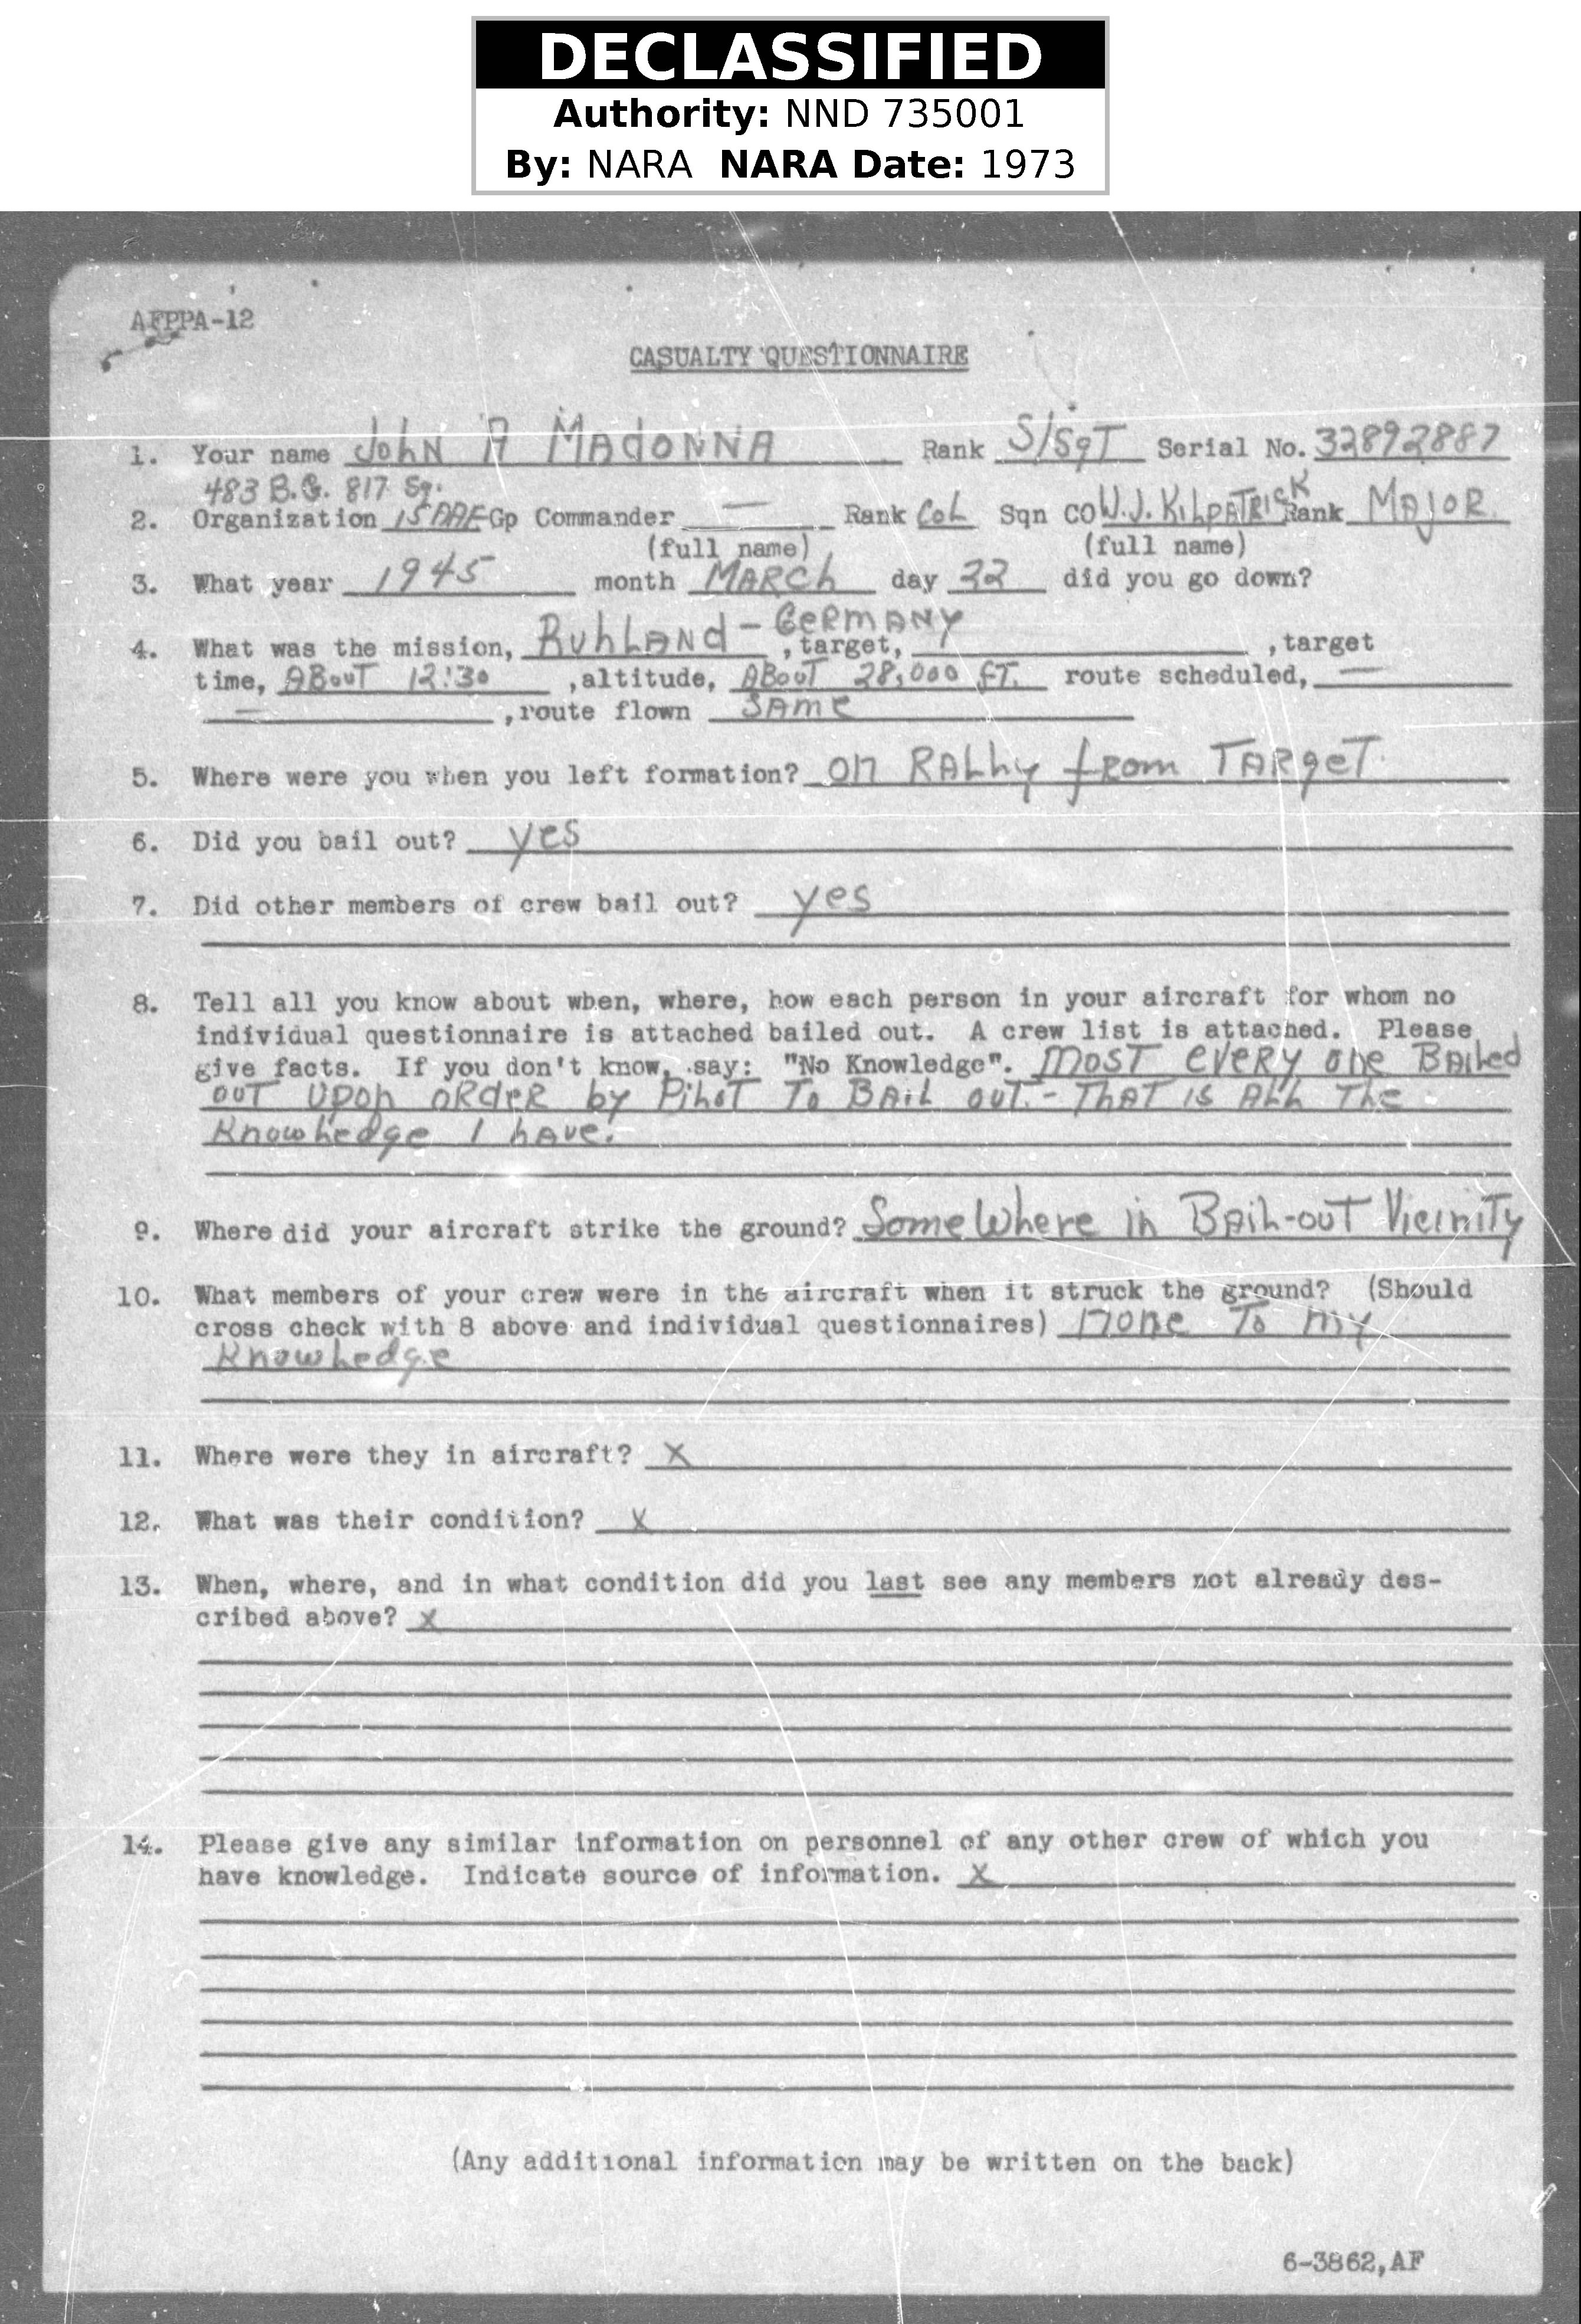 DECLASSIFIED
Authority: NND 735001
By: NARA NARA Date: 1973
AFPPA-12
CASUALTY QUESTIONNAIRE
1. Your name John A MADONNA Rank S/SgT Serial No. 32892887
483 B.G. 817 Sq.
2. Organization 15 AAF Gp Commander — Rank Col Sqn CO W.J. KILPATRICK Rank MAJOR
(full name) (full name)
3. What year 1945 month MARCh day 22 did you go down?
4. What was the mission, RuhLANd - GeRmANy , target, , target
time, ABouT 12:30 , altitude, ABouT 28,000 fT. route scheduled, —
— , route flown SAme
5. Where were you when you left formation? on RALLy fRom TARgeT
6. Did you bail out? yes
7. Did other members of crew bail out? yes
8. Tell all you know about when, where, how each person in your aircraft for whom no
individual questionnaire is attached bailed out. A crew list is attached. Please
give facts. If you don't know, say: "No Knowledge". MOST every one BAiled
ouT upon ORdeR by PiloT To BAil ouT. - ThAT is All The
Knowledge I hAve.
9. Where did your aircraft strike the ground? SomeWhere in BAil-ouT ViciniTy
10. What members of your crew were in the aircraft when it struck the ground? (Should
cross check with 8 above and individual questionnaires) None To my
Knowledge
11. Where were they in aircraft? X
12. What was their condition? X
13. When, where, and in what condition did you last see any members not already des-
cribed above? X
14. Please give any similar information on personnel of any other crew of which you
have knowledge. Indicate source of information. X
(Any additional information may be written on the back)
6-3862,AF